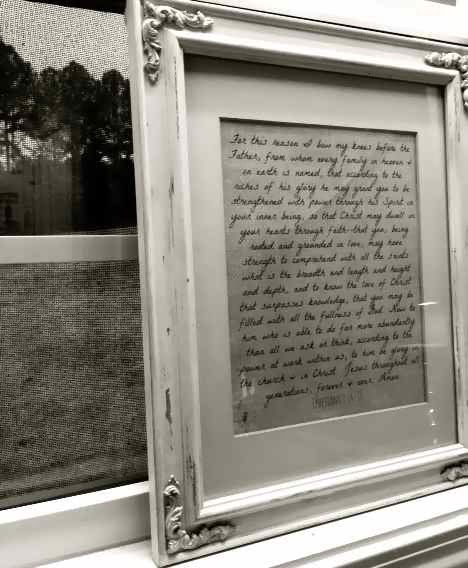 For this reason I bow my knees before the
Father, from whom every family in heaven &
on earth is named, that according to the
riches of his glory he may grant you to be
strengthened with power through his Spirit in
your inner being, so that Christ may dwell in
your hearts through faith-that you, being
rooted and grounded in love, may have
strength to comprehend with all the saints
what is the breadth and length and height
and depth, and to know the love of Christ
that surpasses knowledge, that you may be
filled with all the fullness of God. Now to
him who is able to do far more abundantly
than all we ask or think, according to the
power at work within us, to him be glory in
the church & in Christ Jesus throughout all
generations, forever & ever. Amen.